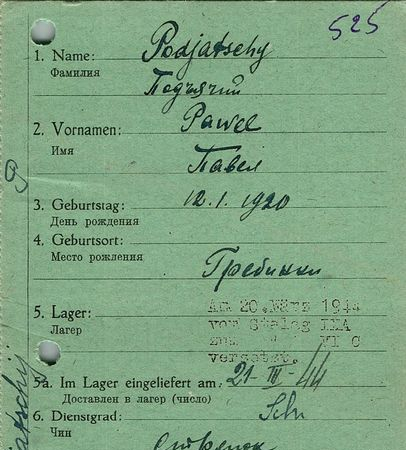 525
1. Name: Podjatschy
Фамилия
Подъячий
2. Vornamen: Pawel
Имя
Павел
3. Geburtstag: 12.1.1920
День рождения
4. Geburtsort:
Место рождения
Гребинки
5. Lager: Am 20. März 1944
Лагерь vom Stalag IIIA
zum " VI C
versetzt.
5a. Im Lager eingeliefert am: 21-III-44
Доставлен в лагерь (число)
6. Dienstgrad: Sch
Чин
Стрелок